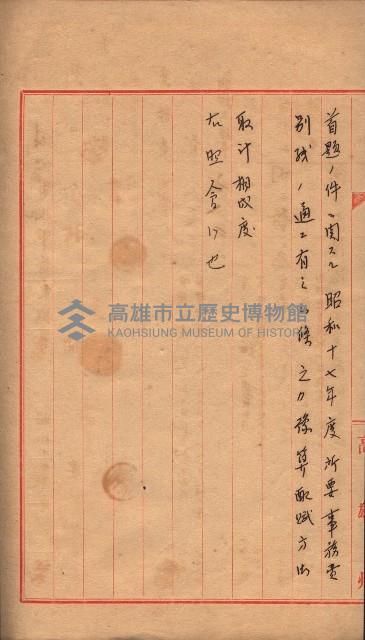 首題ノ件ニ関スル昭和十七年度所要事務費
別紙ノ通ニ有之候條之カ豫算配賦方御
取計相成度
右照會候也
高雄州
高雄市立歷史博物館
KAOHSIUNG MUSEUM OF HISTORY